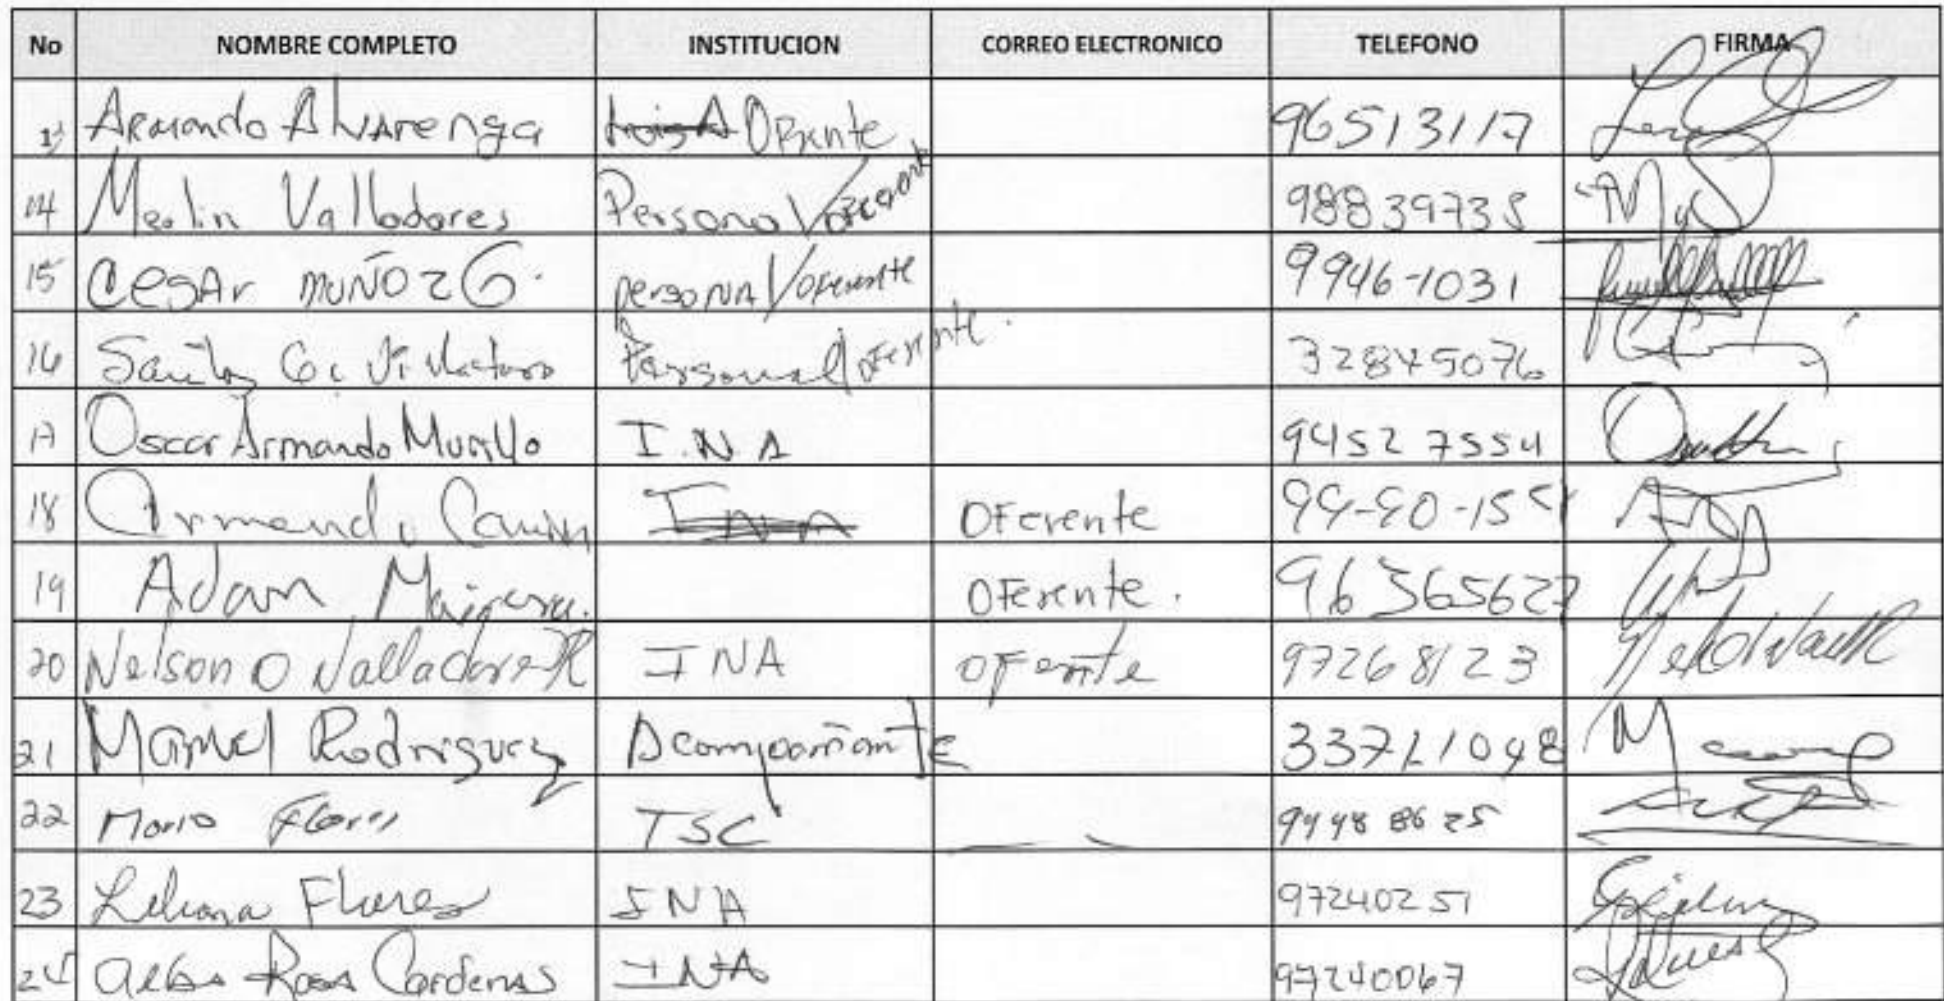 No NOMBRE COMPLETO INSTITUCION CORREO ELECTRONICO TELEFONO FIRMA
13 Armando Alvarenga Oferente 96513117
14 Merlin Valladares Personal/oferente 98839735
15 Cesar MUÑOZ G. personal/oferente 9946-1031
16 Personal/oferente. 32845076
17 Oscar Armando Murillo I.N.A 94527554
18 Armando INA Oferente
19 Adam Oferente. 96365627
20 Nelson O Valladares R INA Oferente 97268123
21 Manuel Rodriguez Acompañante 33711048
22 Mario Flores TSC 9448 8625
23 Liliana Flores INA 97240251
24 Alba Rosa Cardenas INA 97240067